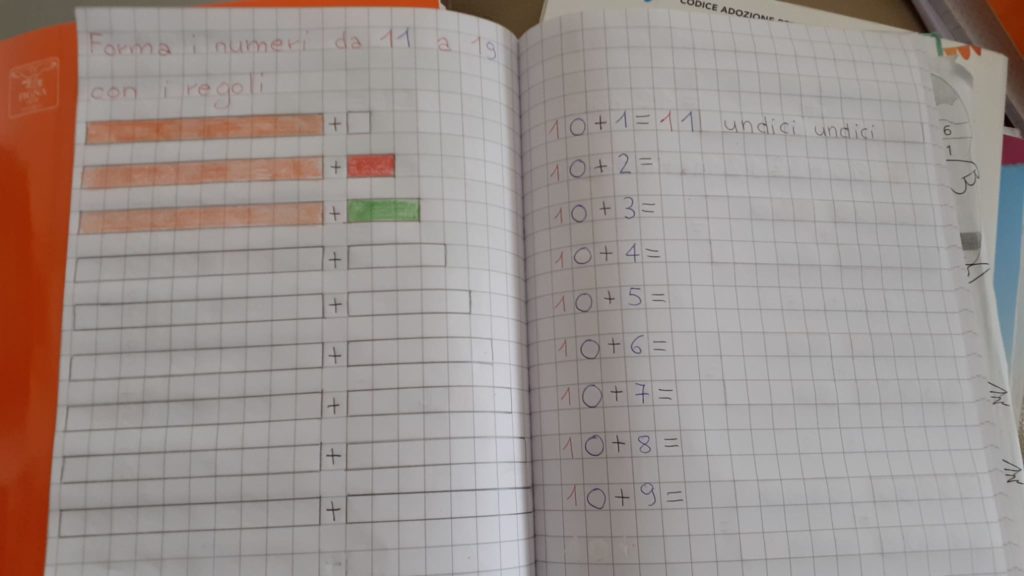 CODICE ADOZIONE
Forma i numeri da 11 a 19
con i regoli
+
+
+
+
+
+
+
+
+
10+1=11 undici undici
10+2=
10+3=
10+4=
10+5=
10+6=
10+7=
10+8=
10+9=